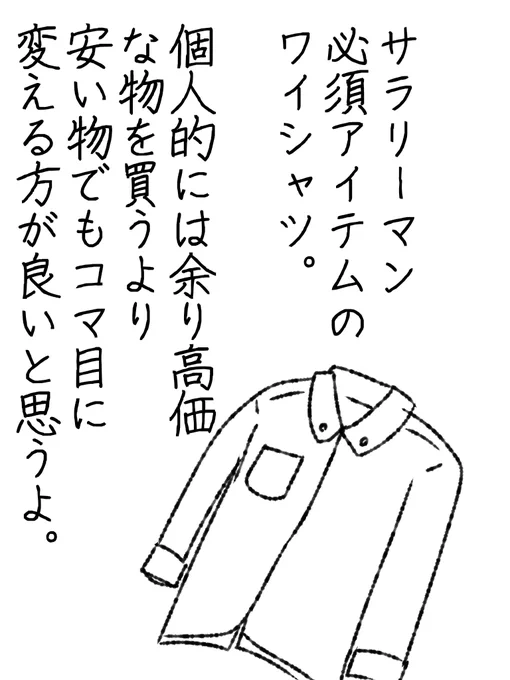 サラリーマン
必須アイテムの
ワイシャツ。
個人的には余り高価
な物を買うより
安い物でもコマ目に
変える方が良いと思うよ。